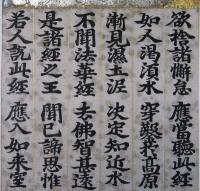 欲捨諸懈怠 應當聽此經
如人渴須水 穿鑿於高原
漸見濕土泥 決定知近水
不聞法華經 去佛智甚遠
是諸經之王 聞已諦思惟
若人說此經 應入如來室